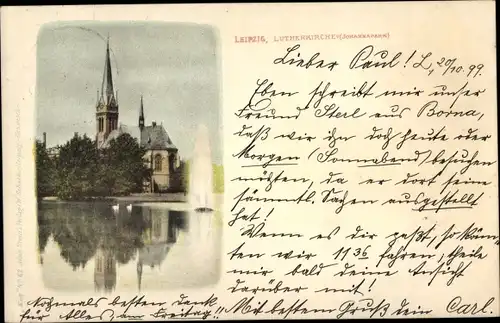 LEIPZIG, LUTHERKIRCHE (JOHANNAPARK)
Lieber Paul! L, 20/10. 99.
Eben schreibt mir unser
Freund Sterl aus Borna,
daß wir ihn doch heute oder
Morgen (Sonnabend) besuchen
möchten, da er dort seine
sämmtl. Sachen ausgestellt
hat!
Wenn es dir paßt, so könn-
ten wir 11 36 fahren, theile
mir bald deine Ansicht
darüber mit!
Nochmals besten Dank
für Alles, am Freitag!!
Mit bestem Gruß dein Carl.